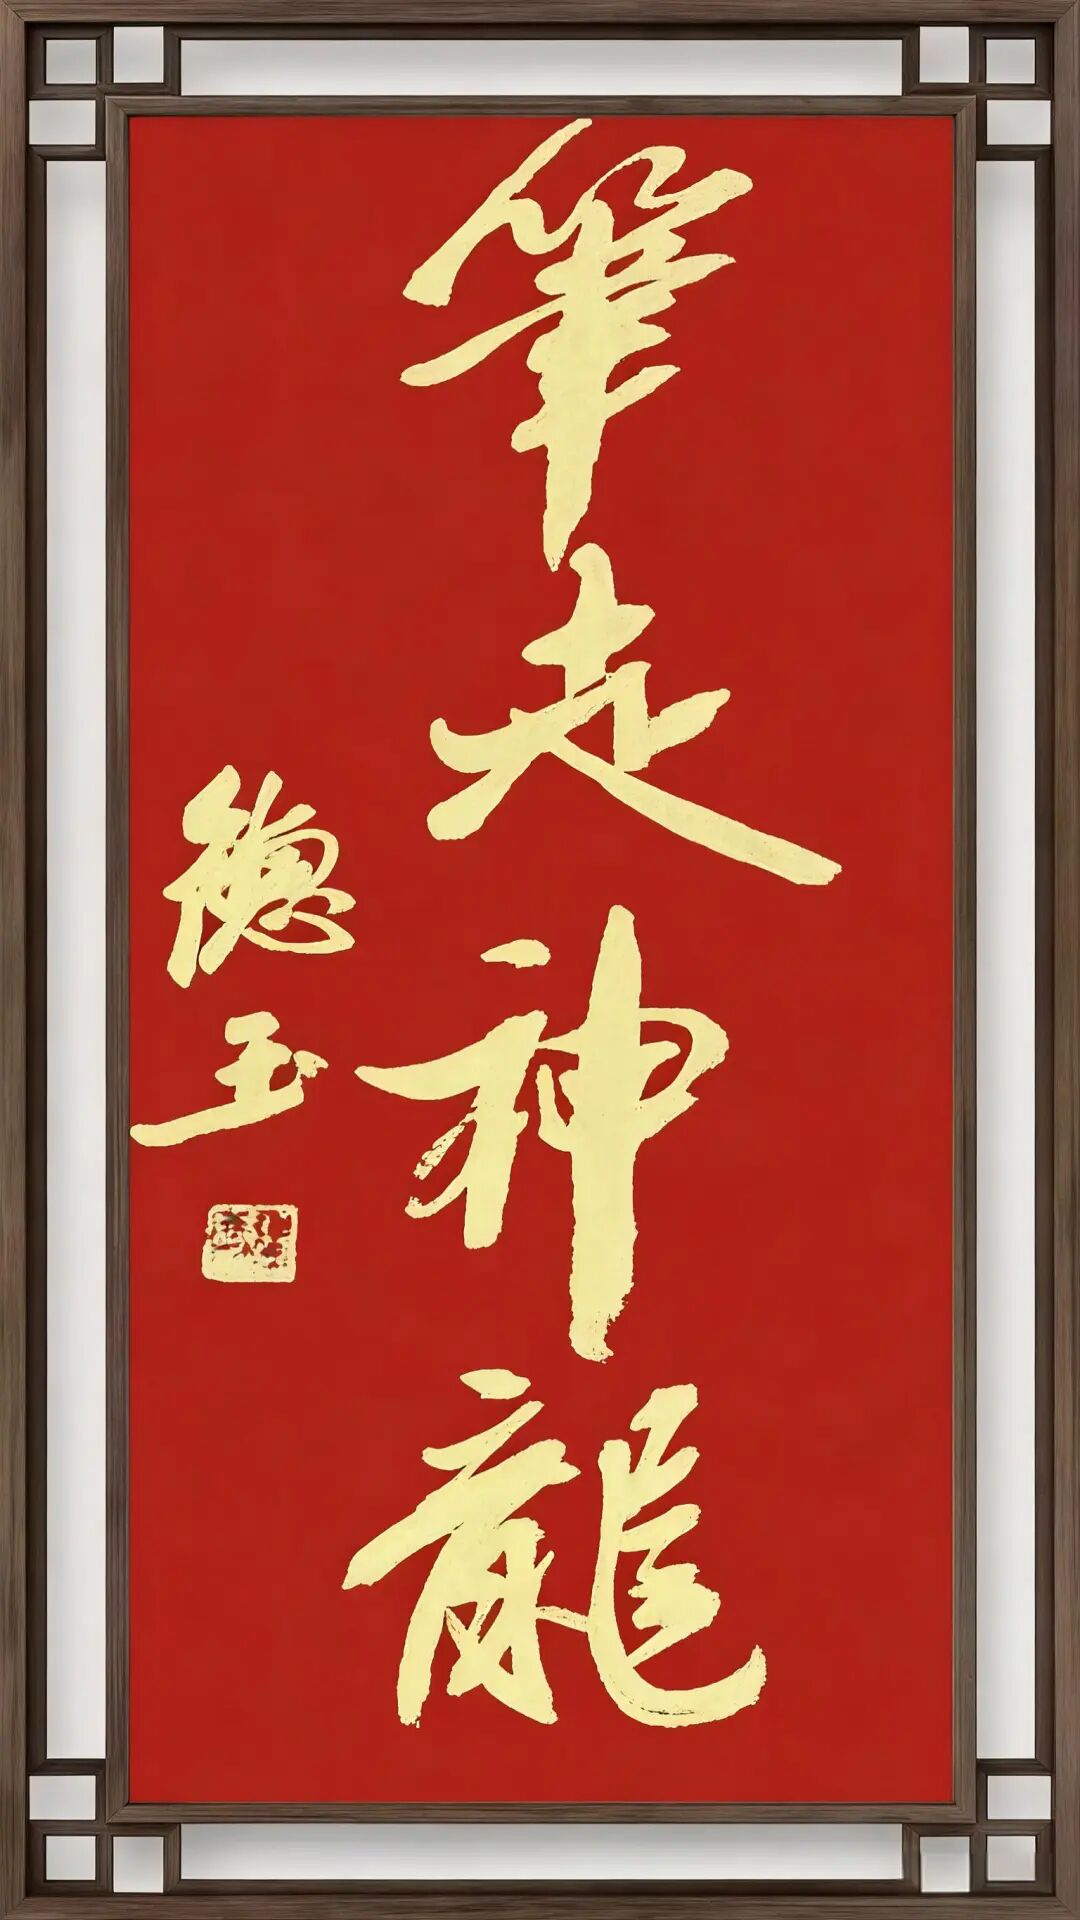 筆走神龍
德玉